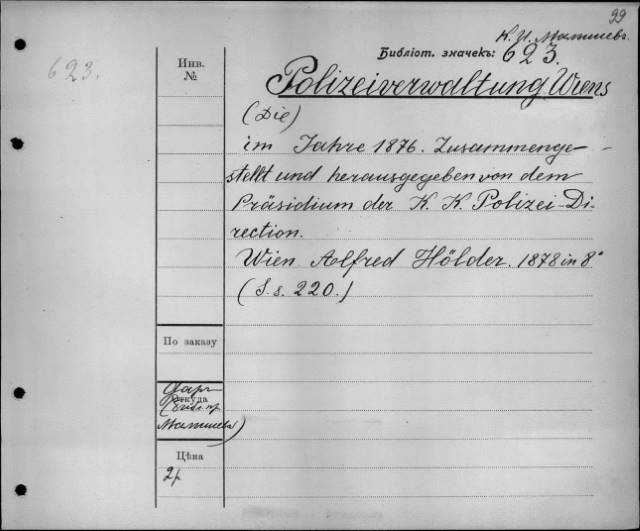 99
К. И. Малышевъ.
623.
Инв.
№
Библіот. значекъ: 623.
Polizeiverwaltung Wiens
(Die)
im Jahre 1876. Zusammenge-
stellt und herausgegeben von dem
Präsidium der K. K. Polizei-Di-
rection.
Wien Alfred Hölder. 1878 in 8°
(S. s. 220.)
По заказу
Даръ
Откуда
Малышева)
Цѣна
2р